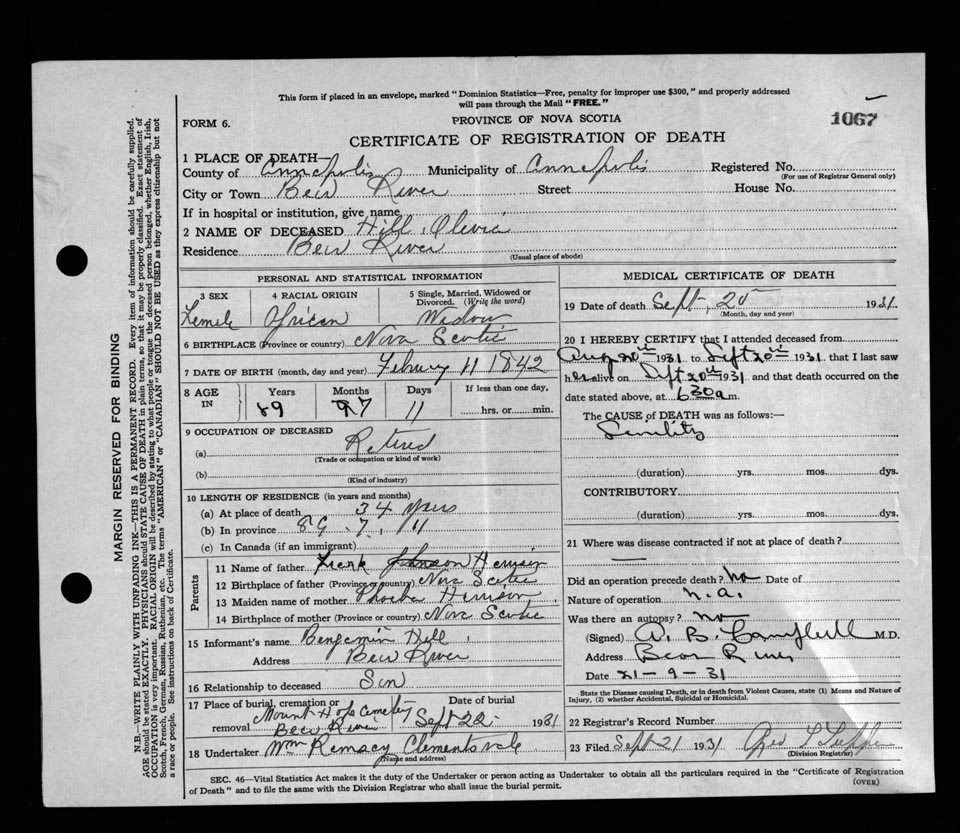 This form if placed in an envelope, marked "Dominion Statistics—Free, penalty for improper use $300," and properly addressed
will pass through the Mail "FREE."
FORM 6.
PROVINCE OF NOVA SCOTIA
1067
CERTIFICATE OF REGISTRATION OF DEATH
1 PLACE OF DEATH—
County of Annapolis Municipality of Annapolis Registered No.
(For use of Registrar General only)
City or Town Bear River Street House No.
If in hospital or institution, give name
2 NAME OF DECEASED Hill, Olevia
Residence Bear River
(Usual place of abode)
PERSONAL AND STATISTICAL INFORMATION
3 SEX 4 RACIAL ORIGIN 5 Single, Married, Widowed or Divorced. (Write the word)
Female African Widow
6 BIRTHPLACE (Province or country) Nova Scotia
7 DATE OF BIRTH (month, day and year) Februry 11 1842
8 AGE IN Years Months Days If less than one day,
89 7 11 hrs. or min.
9 OCCUPATION OF DECEASED
(a) Retired
(Trade or occupation or kind of work)
(b)
(Kind of industry)
10 LENGTH OF RESIDENCE (in years and months)
(a) At place of death 34 years
(b) In province 89. 7, 11
(c) In Canada (if an immigrant)
Parents
11 Name of father Johnson
12 Birthplace of father (Province or country) Nova Scotia
13 Maiden name of mother Phoebe Herrison
14 Birthplace of mother (Province or country) Nova Scotia
15 Informant's name Bengamin Hill
Address Bear River
16 Relationship to deceased Son
17 Place of burial, cremation or removal Date of burial
Mount Hope Cemetery
Bear River Sept 22 1931
18 Undertaker Wm Ramsay Clementsvale
(Name and address)
MEDICAL CERTIFICATE OF DEATH
19 Date of death Sept, 20 1931
(Month, day and year)
20 I HEREBY CERTIFY that I attended deceased from
Aug 20th 1931 to Sept 20th 1931 that I last saw
her alive on Sept 20th 1931 and that death occurred on the
date stated above, at 6 30 a m.
The CAUSE of DEATH was as follows:—
Senility
(duration) yrs. mos. dys.
CONTRIBUTORY
(duration) yrs. mos. dys.
21 Where was disease contracted if not at place of death?
—
Did an operation precede death? no Date of
Nature of operation n.a.
Was there an autopsy? no
(Signed) A. B. Campbell M.D.
Address Bear River
Date 21-9-31
State the Disease causing Death, or in death from Violent Causes, state (1) Means and Nature of
Injury, (2) whether Accidental, Suicidal or Homicidal.
22 Registrar's Record Number
23 Filed Sept 21 1931
(Division Registrar)
SEC. 46—Vital Statistics Act makes it the duty of the Undertaker or person acting as Undertaker to obtain all the particulars required in the "Certificate of Registration
of Death" and to file the same with the Division Registrar who shall issue the burial permit.
(OVER)
MARGIN RESERVED FOR BINDING
N.B.—WRITE PLAINLY WITH UNFADING INK—THIS IS A PERMANENT RECORD. Every item of information should be carefully supplied.
AGE should be stated EXACTLY. PHYSICIANS should STATE CAUSE OF DEATH in plain terms, so that it may be properly classified. Exact statement of
OCCUPATION is very important. RACIAL ORIGIN will be described by stating to what people or tongue the deceased person belonged, whether English, Irish,
Scotch, French, German, Russian, Ruthenian, etc. The terms "AMERICAN" or "CANADIAN" SHOULD NOT BE USED as they express citizenship but not
a race or people. See instructions on back of Certificate.